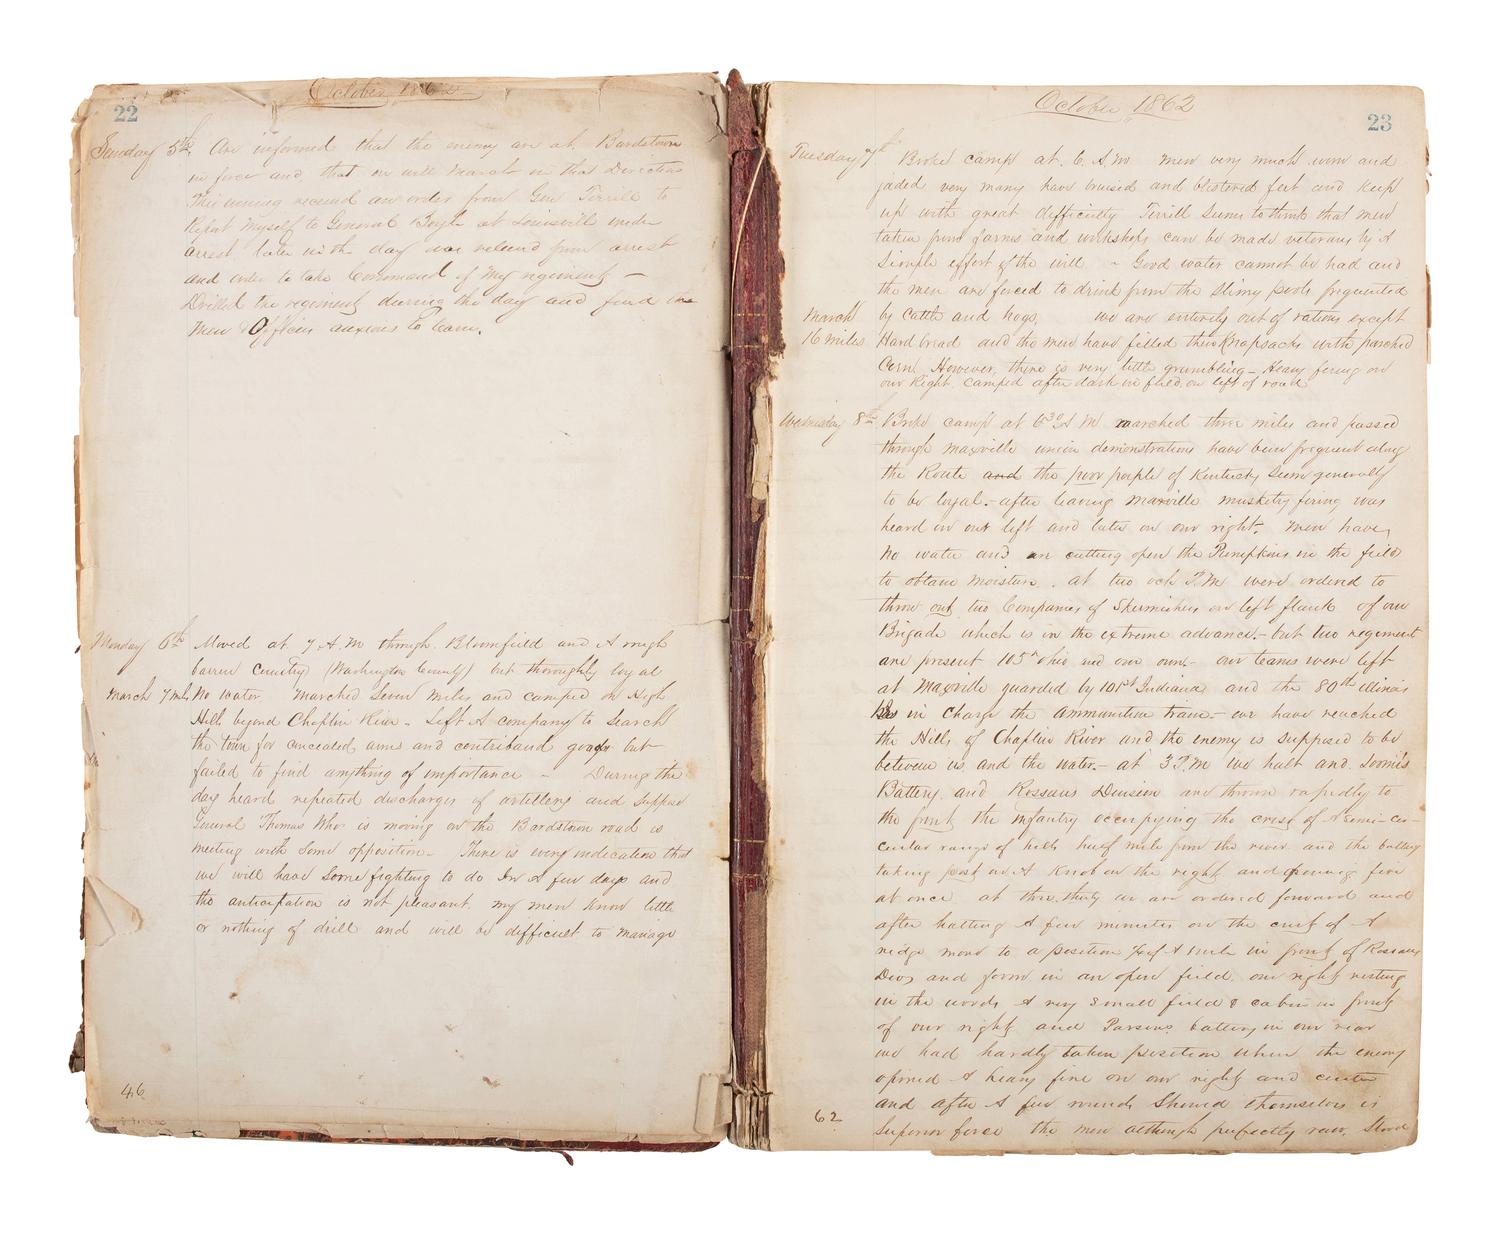 October 1862
22
Sunday 5th. Are informed that the enemy are at Bardstown
in force and that we will march in that Direction
This evening received an order from Gen Terrill to
Report Myself to General Boyle at Louisville under
arrest, later in the day was released from arrest
and order to take Command of my regiment —
Drilled the regiment during the day and find the
Men & Officers anxious to learn.
Monday 6th Moved at 7 A.M through Bloomfield and A rough
barren Country (Washington County) but thoroughly loyal
March 7 mls No water Marched Seven Miles and camped on High
Hill beyond Chaplin River – Left A company to search
the town for concealed arms and contriband goods but
failed to find anything of importance – During the
day heard repeated discharges of artillery and suppose
General Thomas Who is moving on the Bardstown road is
meeting with some opposition – There is every indication that
we will have some fighting to do In A few days and
the anticipation is not pleasant. my men Know little
or nothing of drill and will be difficult to manage
46
October 1862
23
Tuesday 7th Broke camp at 6 A M Men very much worn and
jaded very many have bruised and blistered feet and keep
up with great difficulty Terrill Seems to think that men
taken from farms and workshops can be made veterans by A
Simple effort of the will – Good water cannot be had and
the men are forced to drink from the slimy pools frequented
March by Cattle and hogs, we are entirely out of rations except
16 miles Hard bread and the men have filled their Knapsacks with parched
Corn However, there is very little grumbling – Heavy firing on
our Right. camped after dark in field on left of road
Wednesday 8th Broke camp at 6 30 A M marched three miles and passed
through Maxville union demonstrations have been frequent along
the Route and the poor people of Kentucky Seem generally
to be loyal. – after leaving Maxville musketry firing was
heard on our left and later on our right. Men have
No water and are cutting open the Pumpkins in the field
to obtain moisture. at two ock P.M were ordered to
throw out two Companies of Skirmishers on left flank of our
Brigade which is in the extreme advance. – but two regiments
are present 105th Ohio and our own – our teams were left
at Maxville guarded by 101st Indiana and the 80th Illinois
in Charge the Ammunition train – we have reached
the Hills of Chaplin River and the enemy is supposed to be
between us and the water – at 3 P.M we halt and Loomis
Battery and Rossaus Division are thrown rapidly to
the front the infantry occupying the crest of A semi-cir-
cular range of hills half mile from the river and the battery
taking post on A Knob on the right and opening fire
at once at three thirty we are ordered forward and
after halting A few minutes on the crest of A
ridge move to a position of A mile in front of Rossaus
Divs and form in an open field, our right resting
in the woods A very small field & cabin in front
of our right and Parsons battery in our rear
we had hardly taken position when the enemy
opened A heavy fire on our right and center
and after A few rounds Showed themselves in
Superior force the men although perfectly raw, Stood
62